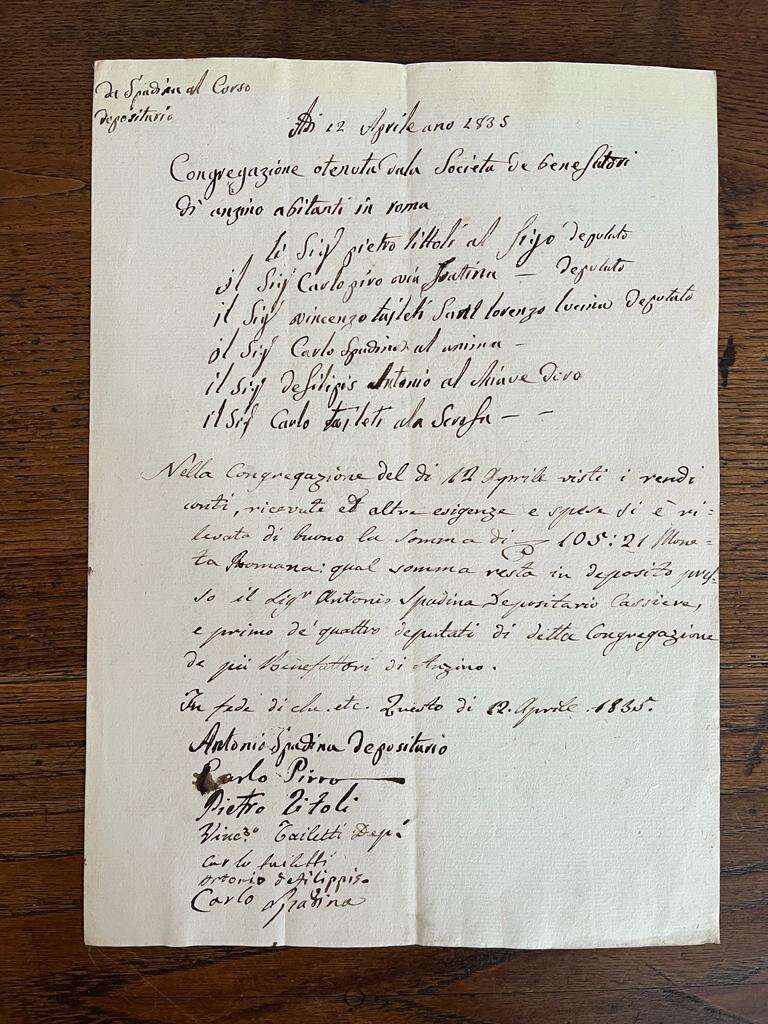 da Spadina al Corso
depositario
Adi 12 Aprile ano 1835
Congregazione otenuta dala Societa de benefatori
di anzino abitanti in roma
li Sig pietro tittoli al deputato
il Sig Carlo piro avia fratina — deputato
il Sig vincenzo tajleti Sant lorenzo lucina deputato
il Sig Carlo Spadina al anima —
il Sig defilipis Antonio al
il Sig Carlo tajleti ala Scrofa — —
Nella Congregazione del di 12 Aprile visti i rendi
conti, ricevute ed altre esigenze e spese si è ri=
levata di buono la somma di 105:21 Mone=
ta Romana: qual somma resta in deposito pres=
so il Sigr Antonio Spadina Depositario Cassiere,
e primo de' quattro deputati di detta Congregazione
de pii Benefattori di Anzino.
In fede di che. etc. Questo di 12. Aprile. 1835.
Antonio Spadina depositario
Carlo Pirro
Pietro Titoli
Vinc.o Tailetti Dep.
Carlo tailetti
Antonio defilippis.
Carlo Spadina